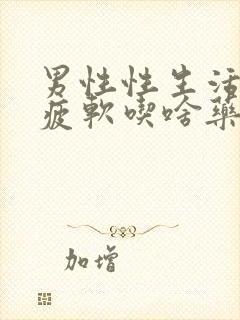 男性性生活
疲軟喫啥藥
加增